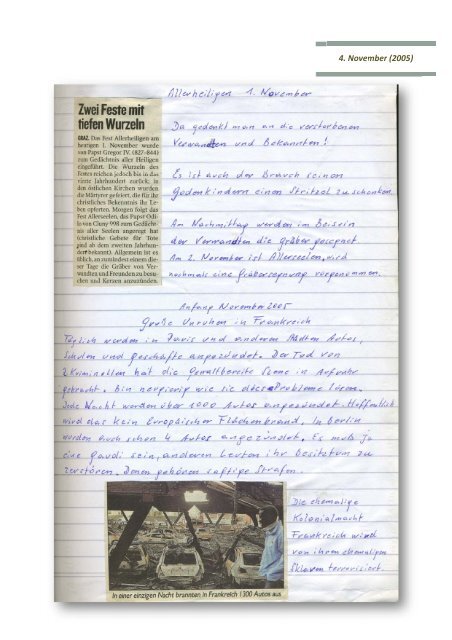 4. November (2005)
Allerheiligen - 1. November
Zwei Feste mit
tiefen Wurzeln
GRAZ. Das Fest Allerheiligen am
heutigen 1. November wurde
von Papst Gregor IV. (827–844)
zum Gedächtnis aller Heiligen
eingeführt. Die Wurzeln des
Festes reichen jedoch bis in das
vierte Jahrhundert zurück; in
den östlichen Kirchen wurden
die Märtyrer gefeiert, die für ihr
christliches Bekenntnis ihr Le-
ben opferten. Morgen folgt das
Fest Allerseelen, das Papst Odi-
lo von Cluny 998 zum Gedächt-
nis aller Seelen angeregt hat
(christliche Gebete für Tote
sind ab dem zweiten Jahrhun-
dert bekannt). Allgemein ist es
üblich, an zumindest einem die-
ser Tage die Gräber von Ver-
wandten und Freunden zu besu-
chen und Kerzen anzuzünden.
Da gedenkt man an die verstorbenen
Verwandten und Bekannten!
Es ist auch der Brauch seinen
Godenkindern einen Stritzel zu schenken.
Am Nachmittag werden im Beisein
der Verwandten die Gräber gesegnet
Am 2. November ist Allerseelen, wird
nochmals eine Gräbersegnung vorgenommen.
Anfang November 2005
Große Unruhen in Frankreich
Täglich werden in Paris und anderen Städten Autos,
Schulen und Geschäfte angezündet. Der Tod von
2 Kriminellen hat die gewaltbereite Scene in Aufruhr
gebracht. Bin neugierig wie sie diese Probleme lösen.
Jede Nacht werden über 1000 Autos angezündet. Hoffentlich
wird das kein Europäischer Flächenbrand. In Berlin
wurden auch schon 4 Autos angezündet. Es muß ja
eine Gaudi sein, anderen Leuten ihr Besitztum zu
zerstören. Denen gehören saftige Strafen.
Die ehemalige
Kolonialmacht
Frankreich wird
von ihren ehemaligen
Sklaven terrorisiert.
In einer einzigen Nacht brannten in Frankreich 1300 Autos aus